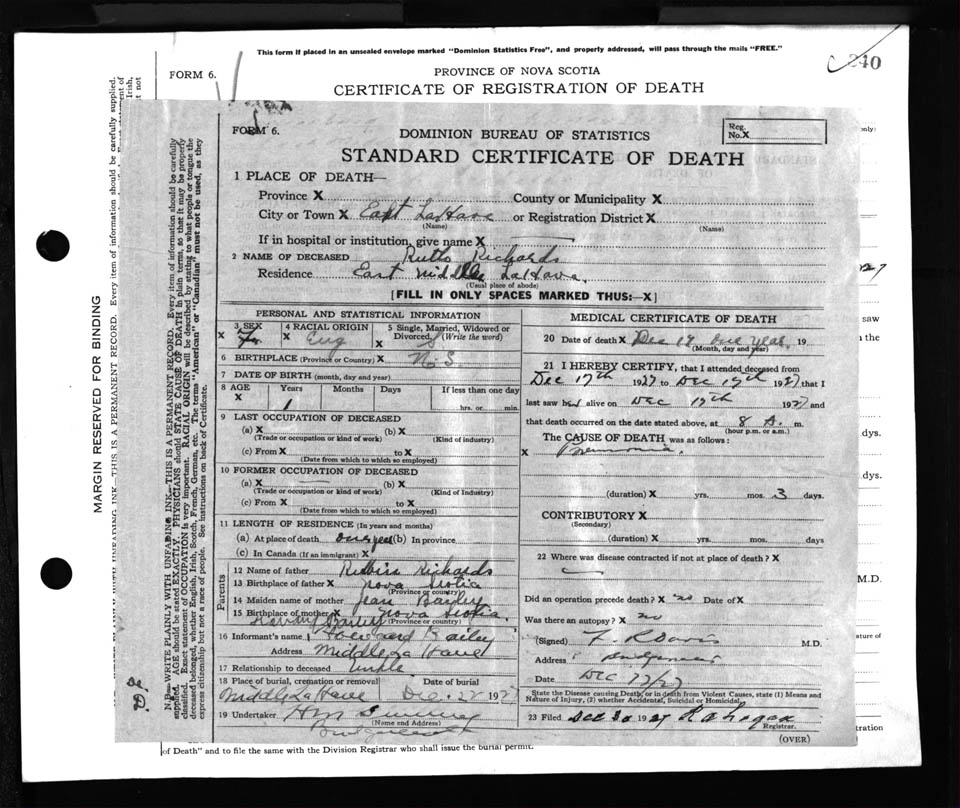 This form if placed in an unsealed envelope marked "Dominion Statistics Free", and properly addressed, will pass through the mails "FREE."
240
FORM 6.
PROVINCE OF NOVA SCOTIA
CERTIFICATE OF REGISTRATION OF DEATH
MARGIN RESERVED FOR BINDING
N.B.—WRITE PLAINLY WITH UNFADING INK—THIS IS A PERMANENT RECORD. Every item of information should be carefully
supplied. AGE should be stated EXACTLY. PHYSICIANS should STATE CAUSE OF DEATH in plain terms, so that it may be properly
classified. Exact statement of OCCUPATION is very important. RACIAL ORIGIN will be described by stating to what people or tongue the
deceased belonged, whether English, Irish, Scotch, French, German, etc. The terms "American" or "Canadian" must not be used, as they
express citizenship but not a race of people. See instructions on back of Certificate.
FORM 6.
DOMINION BUREAU OF STATISTICS
Reg. No. X
STANDARD CERTIFICATE OF DEATH
1 PLACE OF DEATH—
Province X County or Municipality X
City or Town X East LaHave or Registration District X
(Name) (Name)
If in hospital or institution, give name X
2 NAME OF DECEASED Ruth Richards
Residence East Middle LaHave
(Usual place of abode)
[FILL IN ONLY SPACES MARKED THUS:—X]
PERSONAL AND STATISTICAL INFORMATION
X 3 SEX 4 RACIAL ORIGIN X Eng 5 Single, Married, Widowed or Divorced, (Write the word) X S
6 BIRTHPLACE (Province or Country) X N.S
7 DATE OF BIRTH (month, day and year)
8 AGE X Years 1 Months Days If less than one day
hrs. or min.
9 LAST OCCUPATION OF DECEASED
(a) X (b) X
(Trade or occupation or kind of work) (Kind of industry)
(c) From X to X
(Date from which to which so employed)
10 FORMER OCCUPATION OF DECEASED
(a) X (b) X
(Trade or occupation or kind of work) (Kind of Industry)
(c) From X to X
(Date from which to which so employed)
11 LENGTH OF RESIDENCE (In years and months)
(a) At place of death one year (b) In province
(c) In Canada (If an immigrant) X
Parents
12 Name of father Richards
13 Birthplace of father X Nova Scotia
(Province or country)
14 Maiden name of mother Jean
15 Birthplace of mother X Nova Scotia
(Province or country)
16 Informant's name Bailey
Address Middle La Have
17 Relationship to deceased Unkle
18 Place of burial, cremation or removal Date of burial
Middle La Have Dec. 22 1927
19 Undertaker
(Name and Address)
MEDICAL CERTIFICATE OF DEATH
20 Date of death X Dec 19 one year 19
(Month, day and year)
21 I HEREBY CERTIFY, that I attended deceased from
Dec 17th 1927 to Dec 19th 1927 that I
last saw her alive on Dec 19th 1927 and
that death occurred on the date stated above, at 8 A. m.
(hour p.m. or a.m.)
The CAUSE OF DEATH was as follows:
X Pneumonia.
(duration) X yrs. mos. 3 days.
CONTRIBUTORY X
(Secondary)
(duration) X yrs. mos. days
22 Where was disease contracted if not at place of death? X
Did an operation precede death? X no Date of X
Was there an autopsy? X no
(Signed) Davis M.D.
Address
Date Dec
State the Disease causing Death, or in death from Violent Causes, state (1) Means and
Nature of Injury, (2) whether Accidental, Suicidal or Homicidal.
23 Filed Dec 30 1927
Registrar.
(OVER)
of Death" and to file the same with the Division Registrar who shall issue the burial permit.